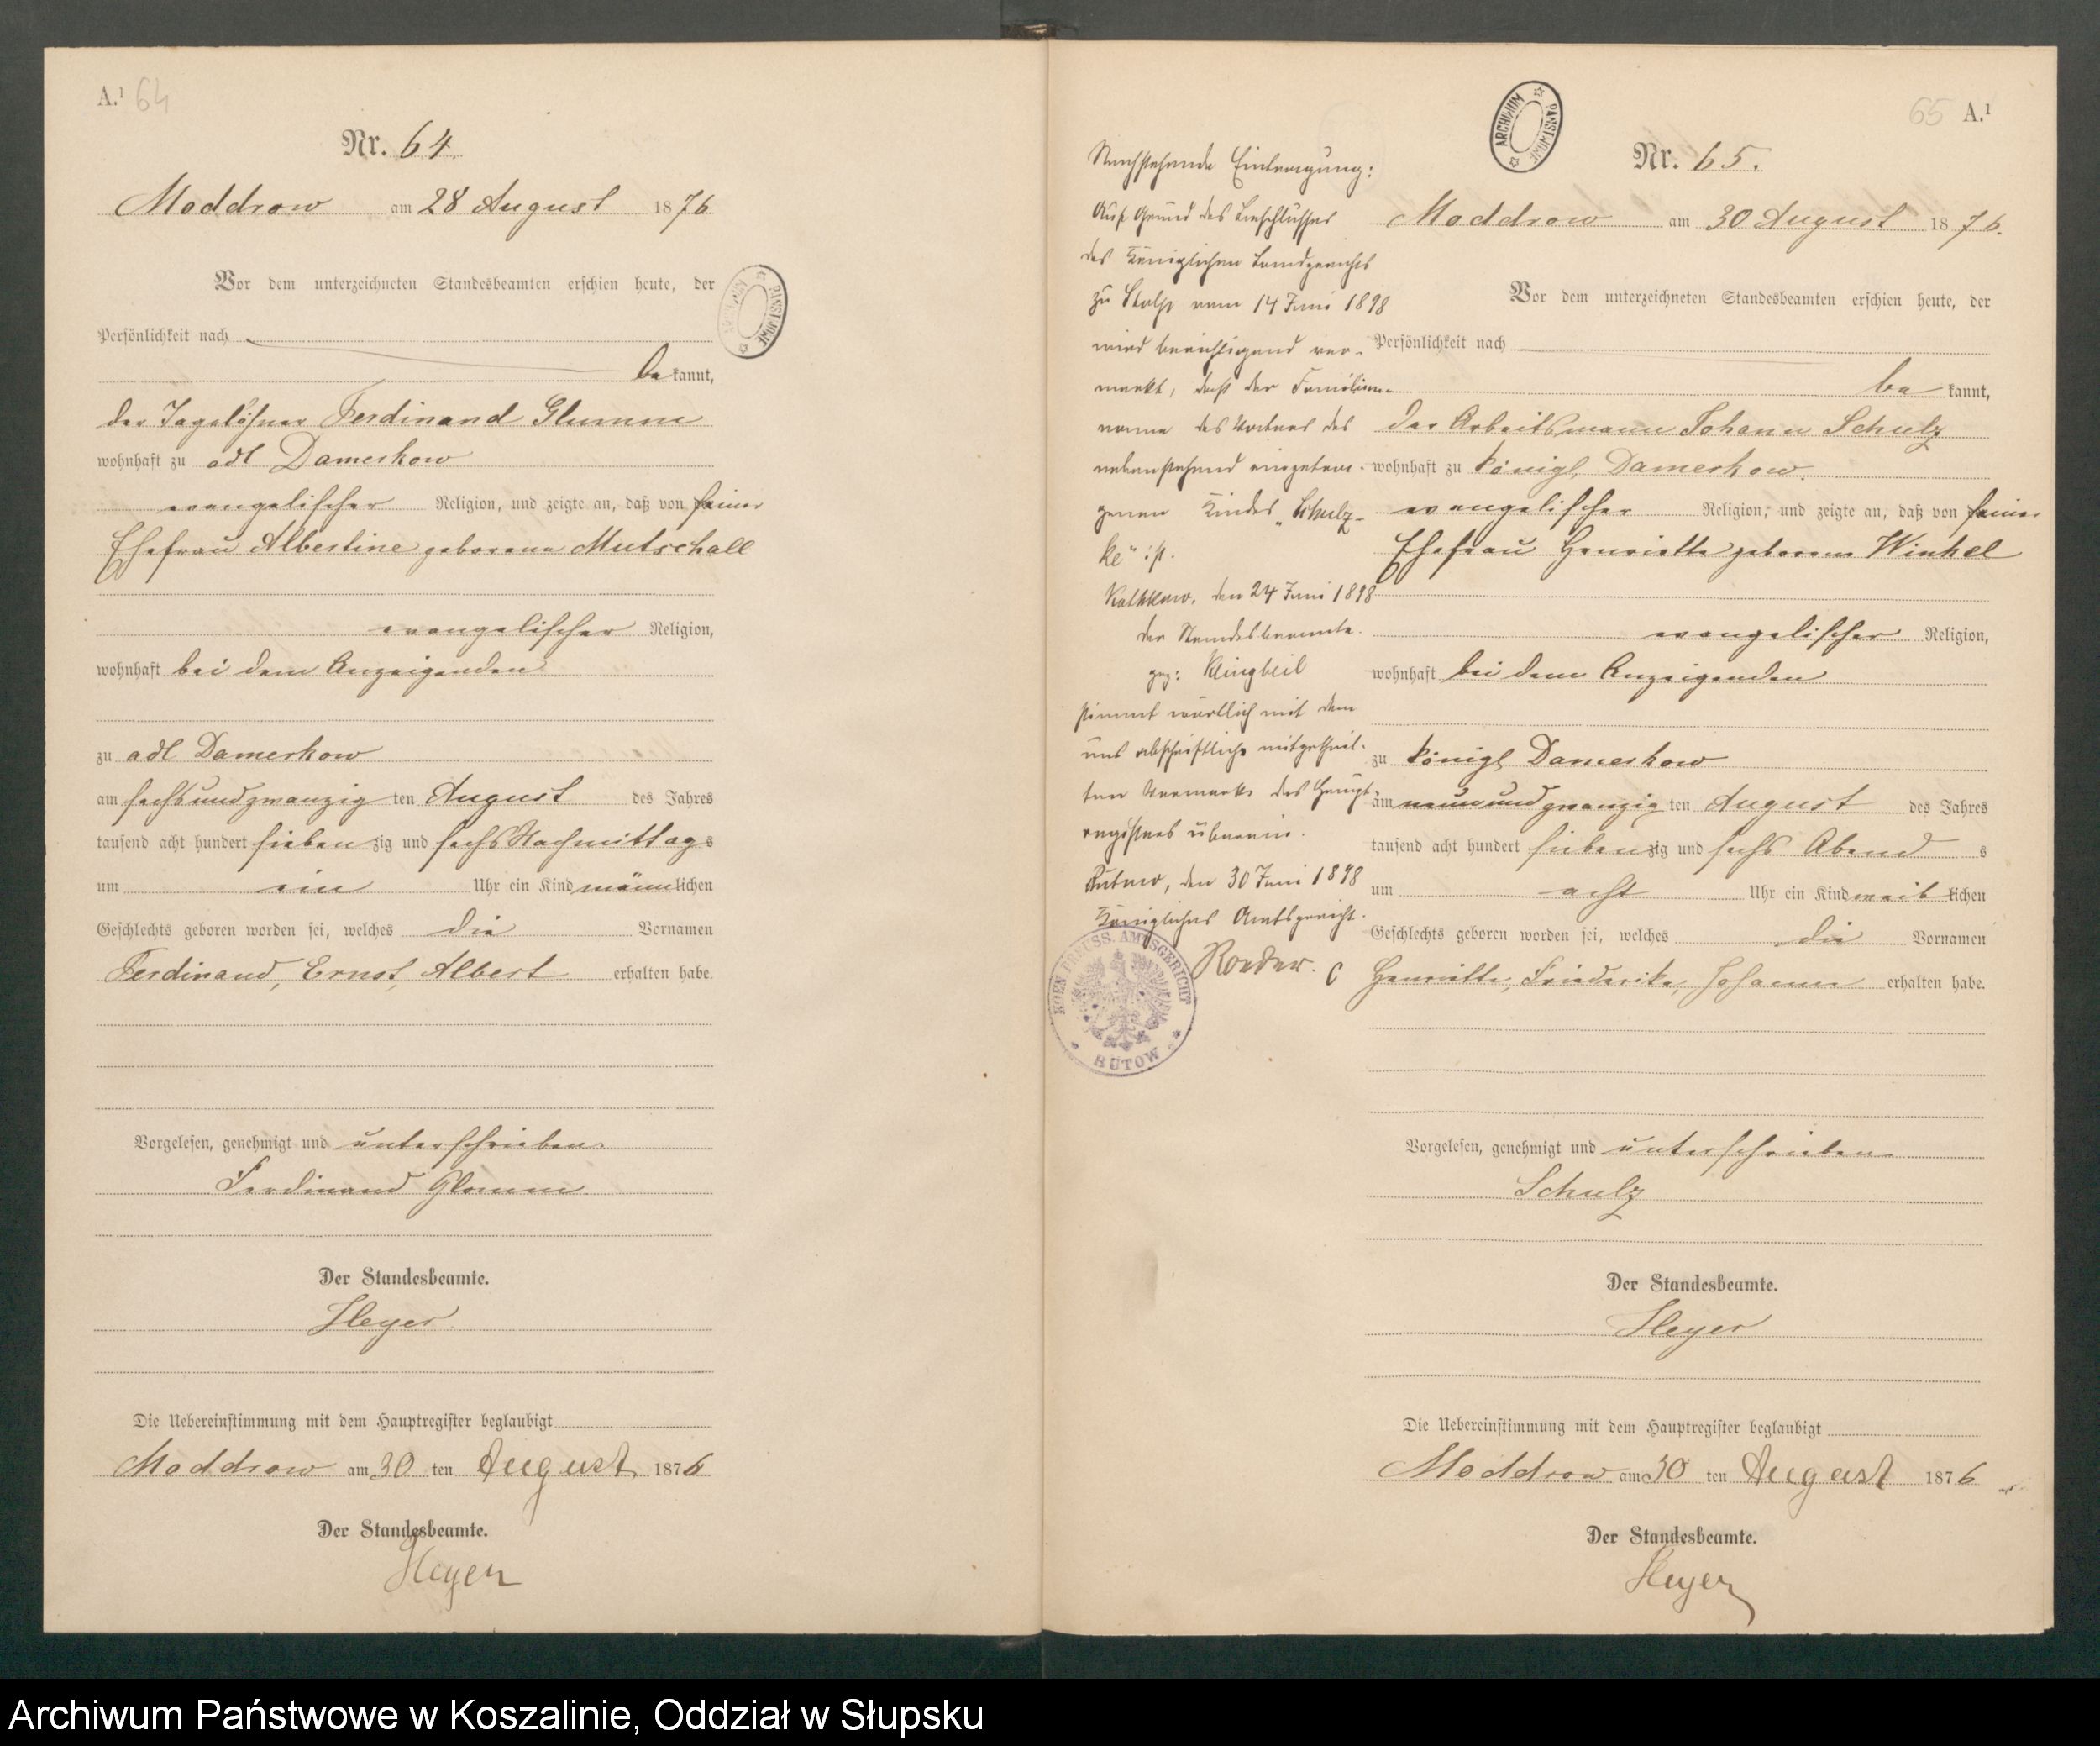 A.¹ 64
Nr. 64.
Moddrow am 28 August 1876
Vor dem unterzeichneten Standesbeamten erschien heute, der
Persönlichkeit nach
be kannt,
der Tagelöhner Ferdinand Glumm
wohnhaft zu adl Damerkow
evangelischer Religion, und zeigte an, daß von seiner
Ehefrau Albertine geborene Mutschall
evangelischer Religion,
wohnhaft bei dem Anzeigenden
zu adl Damerkow
am sechsundzwanzig ten August des Jahres
tausend acht hundert sieben zig und sechs Nachmittag s
um ein Uhr ein Kind männlichen
Geschlechts geboren worden sei, welches die Vornamen
Ferdinand, Ernst, Albert erhalten habe.
Vorgelesen, genehmigt und unterschrieben.
Ferdinand Glomm
Der Standesbeamte.
Heyer
Die Uebereinstimmung mit dem Hauptregister beglaubigt
Moddrow am 30 ten August 1876
Der Standesbeamte.
Heyer
ARCHIWUM PAŃSTWOWE
65 A.¹
ARCHIWUM PAŃSTWOWE
Nr. 65.
Moddrow am 30 August 1876.
Vor dem unterzeichneten Standesbeamten erschien heute, der
Persönlichkeit nach
be kannt,
der Arbeitsmann Johann Schulz
wohnhaft zu Königl. Damerkow.
evangelischer Religion, und zeigte an, daß von seiner
Ehefrau Henriette geborene Winkel
evangelischer Religion,
wohnhaft bei dem Anzeigenden
zu Königl Damerkow
am neunundzwanzig ten August des Jahres
tausend acht hundert sieben zig und sechs Abend s
um acht Uhr ein Kind weiblichen
Geschlechts geboren worden sei, welches die Vornamen
Henriette, Friederike, Johanne erhalten habe.
Vorgelesen, genehmigt und unterschrieben.
Schulz
Der Standesbeamte.
Heyer
Die Uebereinstimmung mit dem Hauptregister beglaubigt
Moddrow am 30 ten August 1876
Der Standesbeamte.
Heyer
Nachstehende Eintragung:
Auf Grund des Beschlusses
des Königlichen Landgerichts
zu Stolp vom 14 Juni 1898
wird berichtigend ver-
merkt, daß der Familien-
name des Vaters des
nebenstehend eingetra-
genen Kindes „Schulz-
ke" ist.
Kathkow, den 24 Juni 1898
der Standesbeamte.
gez: Klingbeil
stimmt wörtlich mit dem
uns abschriftlich mitgetheil-
ten Vermerk des Haupt-
registers überein.
Bütow, den 30 Juni 1898
Königliches Amtsgericht.
Roeder.
KOEN. PREUSS. AMTSGERICHT
BÜTOW
Archiwum Państwowe w Koszalinie, Oddział w Słupsku